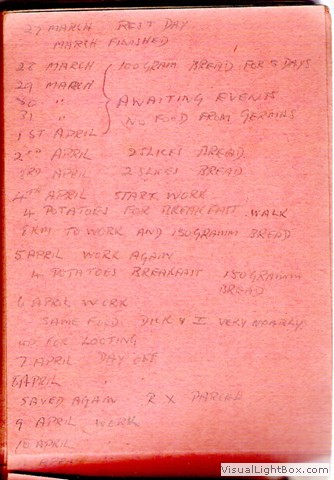 27 MARCH REST DAY
MARCH FINISHED
28 MARCH 100 GRAM BREAD FOR 5 DAYS
29 MARCH
30 "
AWAITING EVENTS
31 "
NO FOOD FROM GERMANS
1ST APRIL
2ND APRIL 2 SLICES BREAD
3RD APRIL 2 SLICES BREAD
4TH APRIL START WORK
4 POTATOES FOR BREAKFAST. WALK
KM TO WORK AND 150 GRAMM BREAD
5 APRIL WORK AGAIN
4 POTATOES BREAKFAST 150 GRAMM
BREAD
6 APRIL WORK
SAME FOOD. DICK & I VERY NEARLY
FOR LOOTING
7 APRIL DAY OFF
8 APRIL
SAVED AGAIN R X PARCEL
9 APRIL WORK
10 APRIL "
VisualLightBox.com